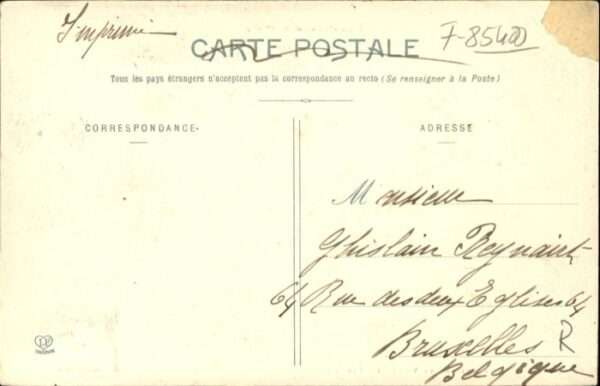 Imprimé
F-85400
CARTE POSTALE
Tous les pays étrangers n'acceptent pas la correspondance au recto (Se renseigner à la Poste)
CORRESPONDANCE
ADRESSE
Monsieur
Ghislain Reynaert
64 Rue des deux Eglises 64
Bruxelles
R
Belgique